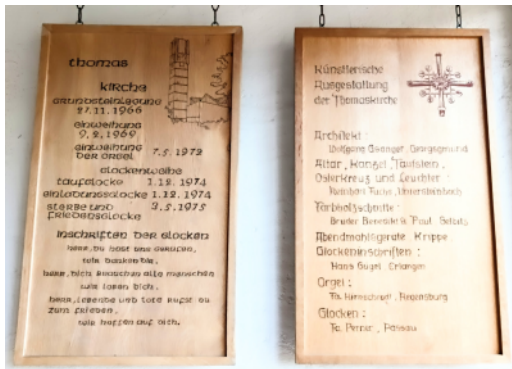 thomas
kirche
grundsteinlegung
27.11.1966
einweihung
9.2.1969
einweihung
der orgel 7.5.1972
glockenweihe
taufglocke 1.12.1974
einladungsglocke 1.12.1974
sterbe und
friedensglocke 9.5.1975
inschriften der glocken
herr, du hast uns gerufen,
wir danken dir,
herr, dich brauchen alle menschen
wir loben dich,
herr, lebende und tote rufst du
zum frieden,
wir hoffen auf dich.
Künstlerische
Ausgestaltung
der Thomaskirche
Architekt :
Wolfgang Gsänger, Georgsgmünd
Altar, Kanzel, Taufstein,
Osterkreuz und Leuchter :
Reinhart Fuchs, Untersteinbach
Farbholzschnitte :
Bruder Benedikt Paul
Abendmahlsgeräte Krippe
Glockeninschriften :
Hans Gugel Erlangen
Orgel :
Fa. Hirnschrodt, Regensburg
Glocken :
Fa. Perner, Passau